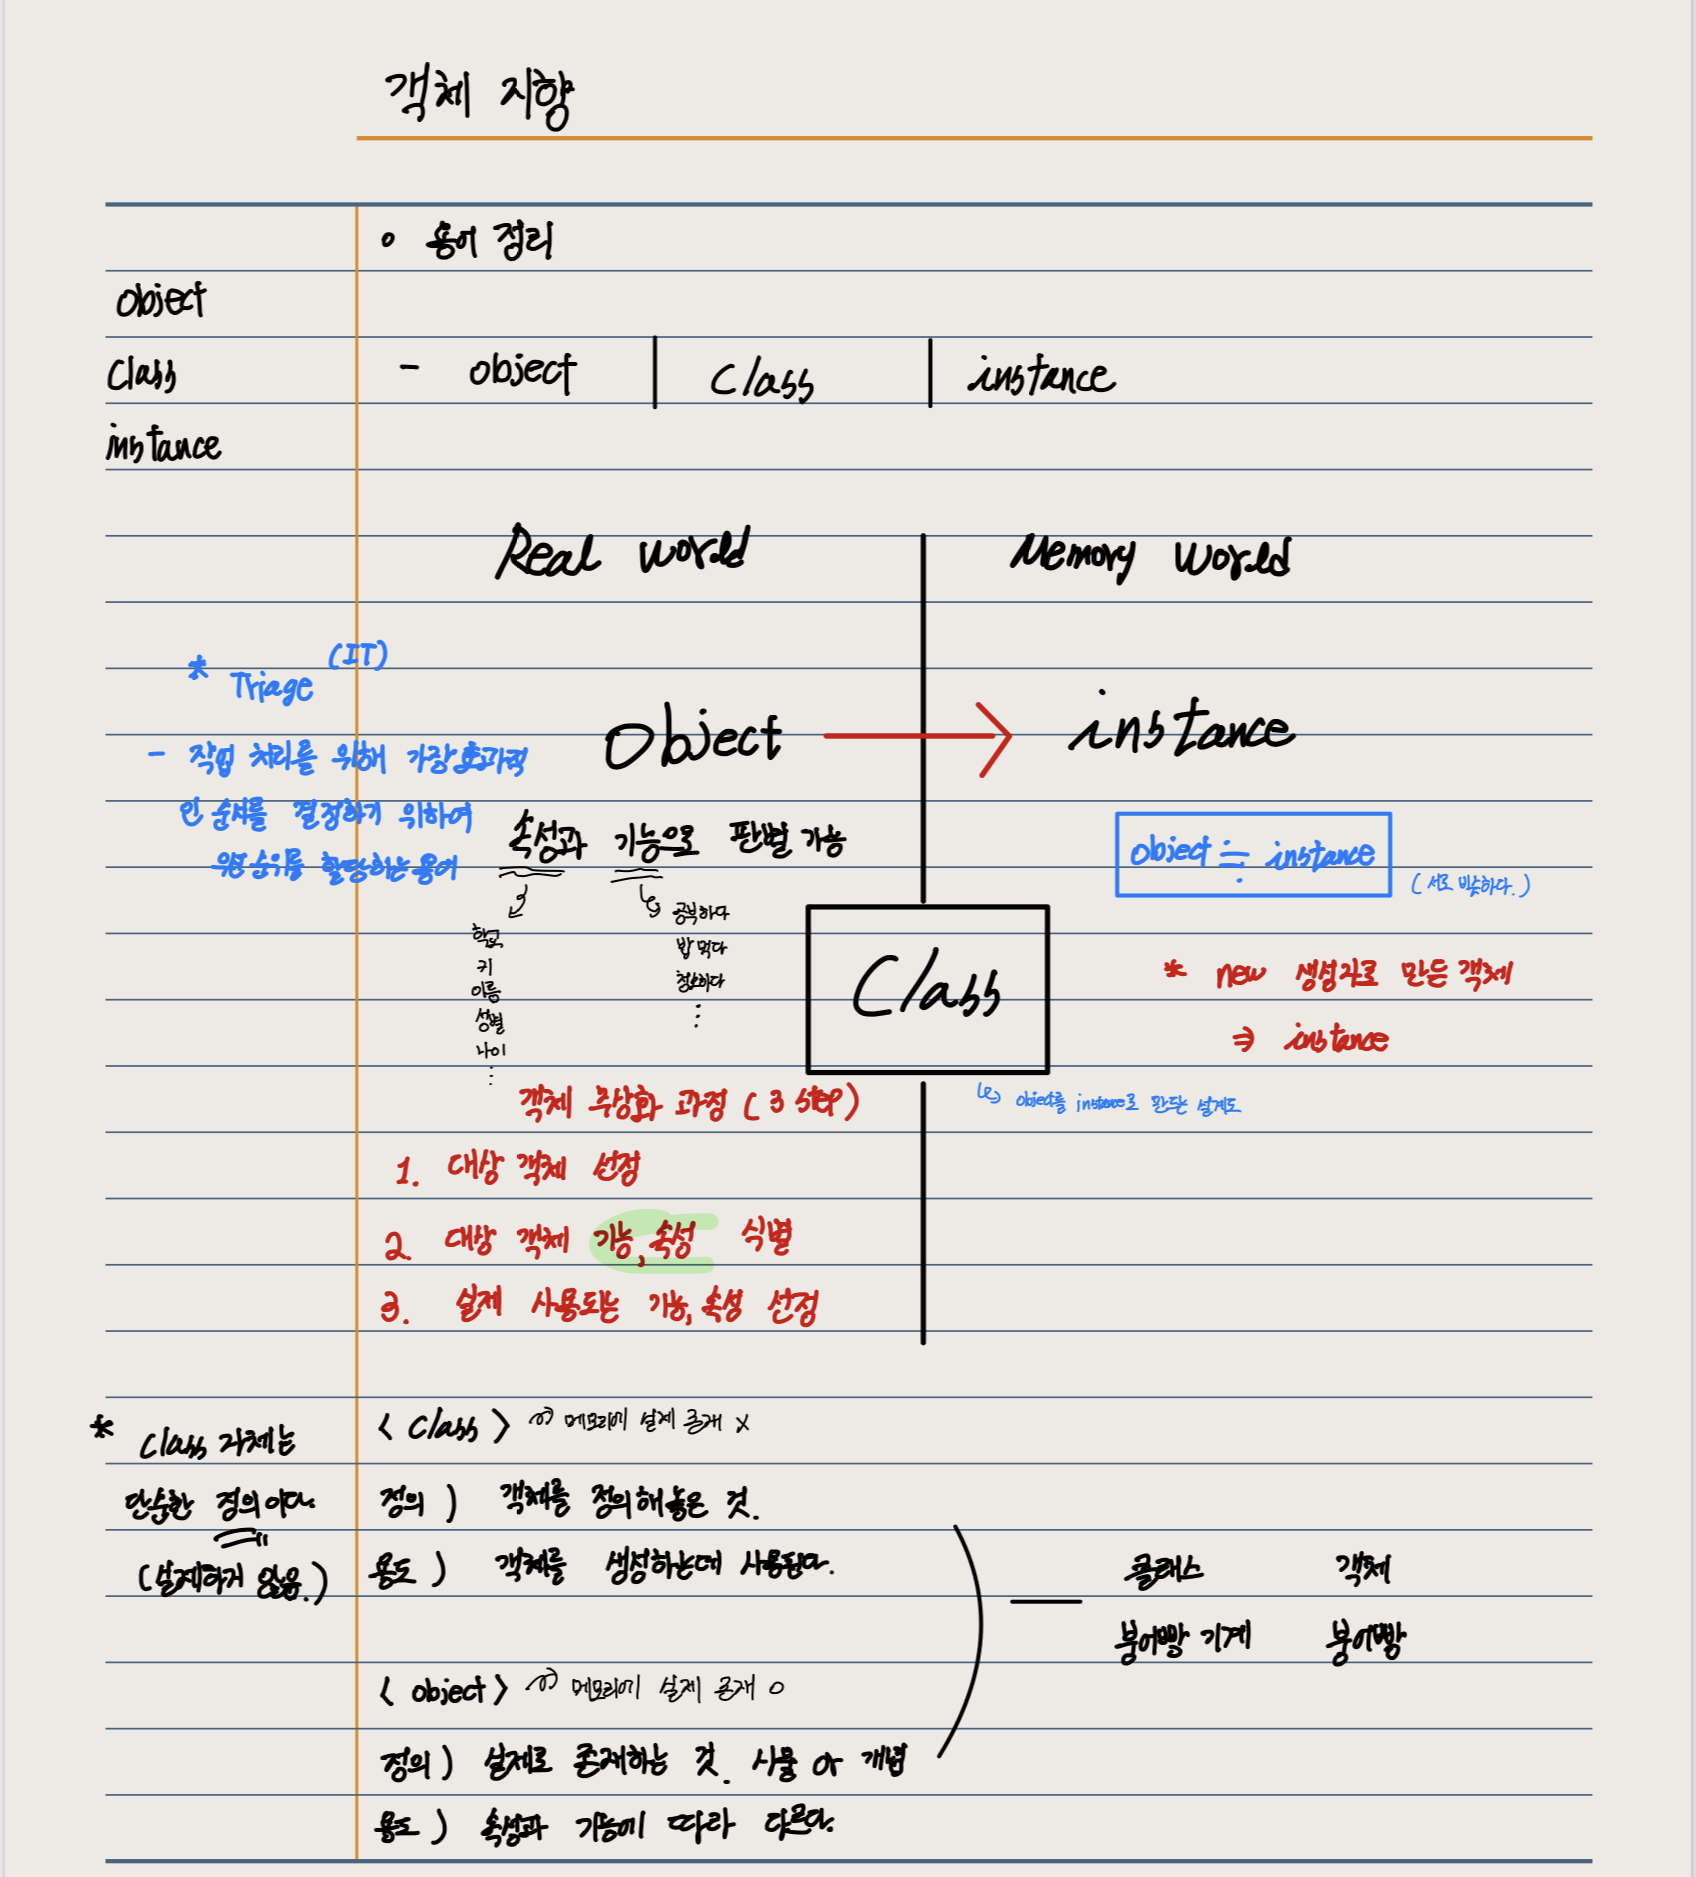 객체 지향
○ 용어 정리
object
Class
instance
- object | Class | instance
Real World
Memory World
* Triage (IT)
- 작업 처리를 위해 가장 효과적
인 순서를 결정하기 위하여
우선순위를 할당하는 용어
Object → instance
속성과 기능으로 판별 가능
학교
키
이름
성별
나이
⋮
공부하다
밥 먹다
청소하다
⋮
object ≒ instance
(서로 비슷하다.)
Class
object를 instance로 만드는 설계도
* new 생성자로 만든 객체
⇒ instance
객체 추상화 과정 (3 step)
1. 대상 객체 선정
2. 대상 객체 기능, 속성 식별
3. 실제 사용되는 기능, 속성 선정
* Class 자체는
단순한 정의이다.
(실제하지 않음.)
< Class > 메모리에 실제 존재 X
정의 ) 객체를 정의해놓은 것.
용도 ) 객체를 생성하는데 사용된다.
< object > 메모리에 실제 존재 O
정의 ) 실제로 존재하는 것. 사물 or 개념
용도 ) 속성과 기능에 따라 다르다.
클래스 객체
붕어빵 기계 붕어빵